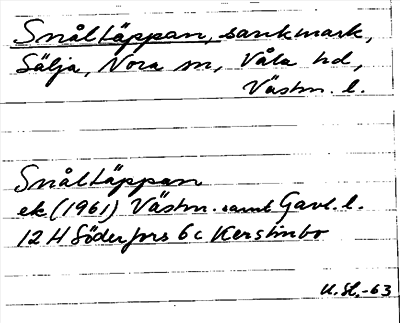 Snåltäppan, sankmark,
Sälja, Nora sn, Våla hd,
Västm. l.
Snåltäppan
ek (1961) Västm. samt Gävl. l.
12 H Söderfors 6 c Kerstinbo
U.St.-63